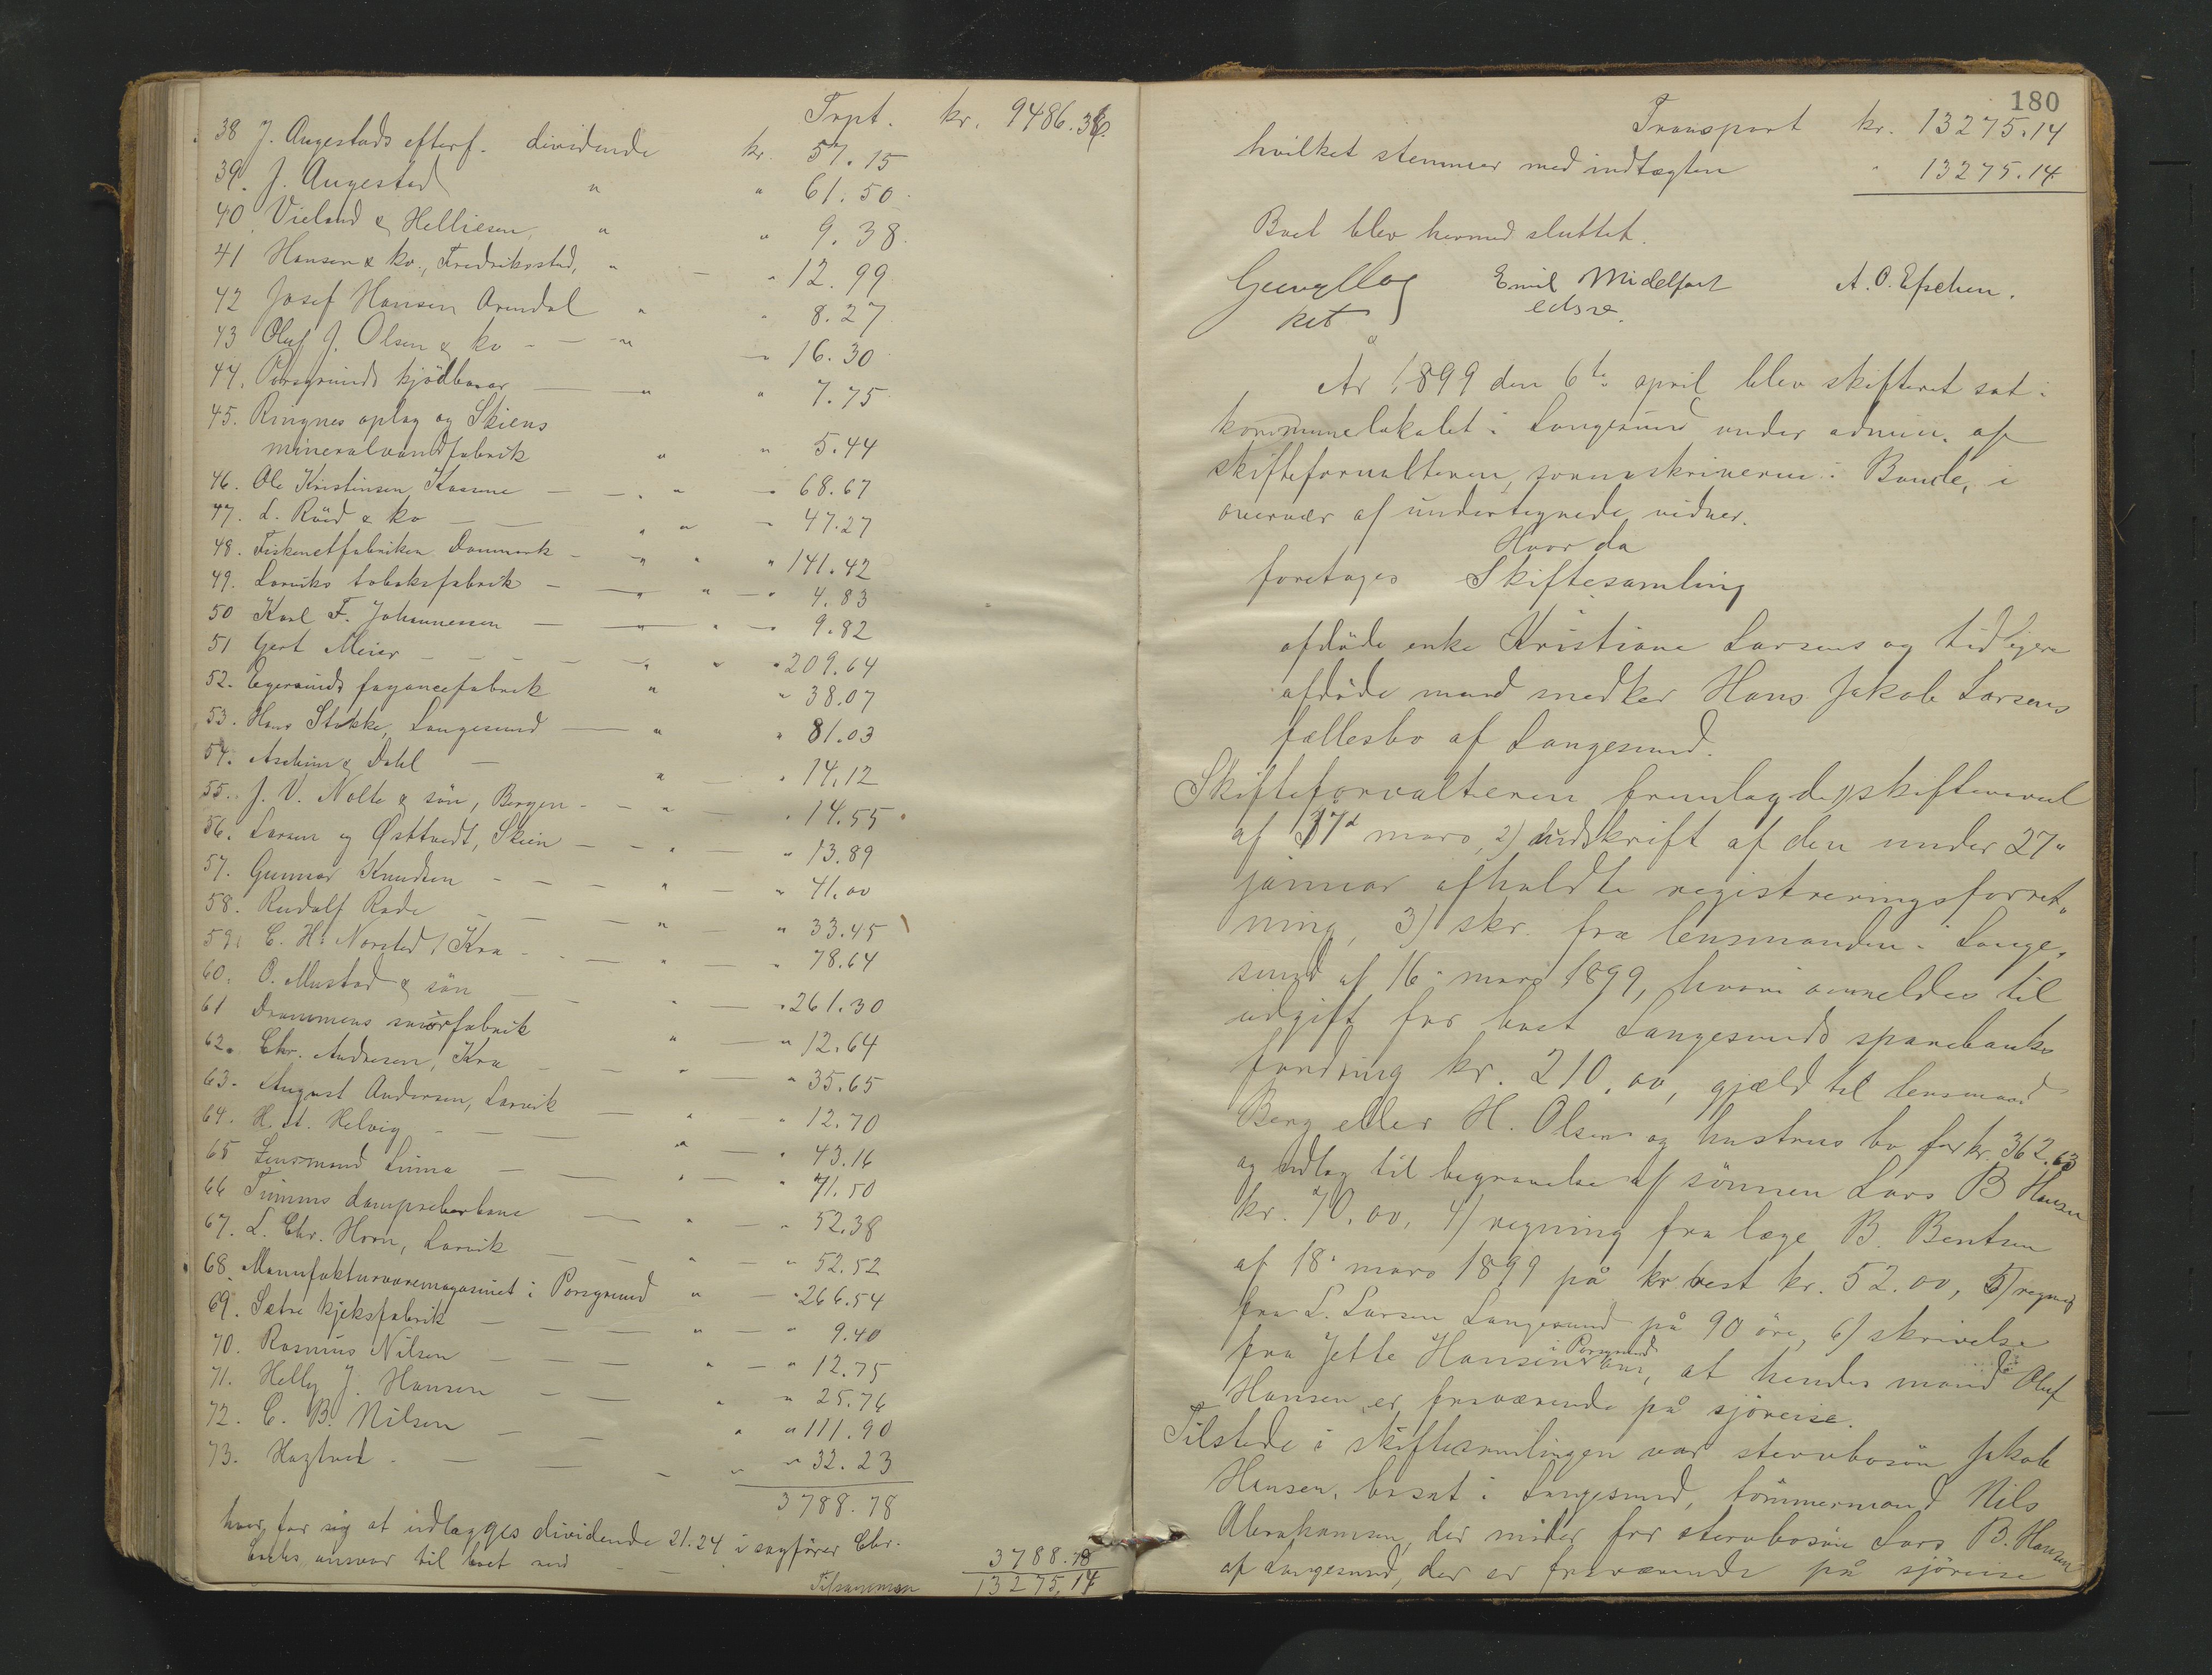 Trpt. kr. 9486.36
38 J. Augestads efterf. dividende kr. 57.15
39. J. Augestad " " 61.50
40. Vieland & Helliesen, " " 9.38
41 Hansen & ko., Fredriksstad, " — " 12.99
42 Josef Hansen Arendal " " 8.27
43 Oluf J. Olsen & ko — — " — 16.30
44. Porsgrunds kjödbasar — " " 7.75
45. Ringnes oplag og Skiens
mineralvandfabrik " " 5.44
46. Ole Kristinsen — — " — 68.67
47. L. Röed & ko — — " " — 47.27
48. Fiskenetfabriken Danmark — " " " 141.42
49. Larviks tobaksfabrik — — " " — " 4.83
50 Karl F. Johannessen — — " " — 9.82
51 Gert Meier — — — — " " " 209.64
52. Egersunds fayancefabrik " " 38.07
53. Hans Stokke, Langesund — " " 81.03
54. & Dahl — " — " 14.12
55. J. V. Nolte & sön, Bergen — — " " 14.55
56. Larsen og Østtvedt, Skien — — " — " 13.89
57. Gunnar Knudsen — — — " — " 41.00
58. Rudolf Rode — — — " — " 33.45
59. C. H. Norstad, Kra — — — " — " 78.64
60. O. Mustad & sön — — " — " 261.30
61 Drammens smörfabrik " — " 12.64
62. Chr. Andresen, Kra — — " — " 35.65
63. August Andersen, Larvik — " " 12.70
64. H. A. Helvig — — — " — " 43.16
65 Lensmand — — " — " 71.50
66 Timms dampreberbane — " — " 52.38
67. L. Chr. Horn, Larvik — — " — " 52.52
68. Manufakturvaremagasinet i Porsgrund " — " 266.54
69. Sætre kjeksfabrik — — — " — " 9.40
70. Rasmus Nilsen — — — " — " 12.75
71. Helly J. Hansen — — " " 25.76
72. C. B. Nilsen — — " " 111.90
73. — — — " " 32.23
3788.78
hver for sig at udlægges dividende 21.24 i sagfører Chr.
ansvar til boet med — — 3788.78
Tilsammen 13275.14
180
Transport kr. 13275.14
hvilket stemmer med indtægten " 13275.14
Boet blev hermed sluttet.
Emil Midelfart A. O.
edsv.
År 1899 den 6te april blev skifteret sat i
kommunelokalet i Langesund under admin. af
skifteforvalteren, sorenskriveren i Bamle, i
overvær af undertegnede vidner.
Hvor da
foretages Skiftesamling
afdöde enke Kristiane Larsens og tidligere
afdöde mand snedker Hans Jakob Larsens
fællesbo af Langesund.
Skifteforvalteren fremlagde 1) skiftevarsel
af 17d mars, 2) udskrift af den under 27"
januar afholdte registreringsforret„
ning, 3) skr. fra lensmanden i Lange„
sund af 16" mars 1899, hvori anmeldes til
udgift for boet Langesunds sparebanks
fordring kr. 210.00, gjæld til lensmand
Berg eller H. Olsen og hustrus bo for kr. 362.63
og udlæg til begravelse af sönnen Lars B Hansen
kr. 70.00, 4) regning fra læge B. Bentsen
af 18" mars 1899 på kr rest kr. 52.00, 5) regning
fra L. Larsen Langesund på 90 öre, 6) skrivelse
fra Jette Hansen i Porsgrund om, at hendes mand Oluf
Hansen er fraværende på sjöreise.
Tilstede i skiftesamlingen var stervbosön Jakob
Hansen, bosat i Langesund, tömmermand Nils
Abrahamsen, der möder for stervbosön Lars B. Hansen
af Langesund, der er fraværende på sjöreise